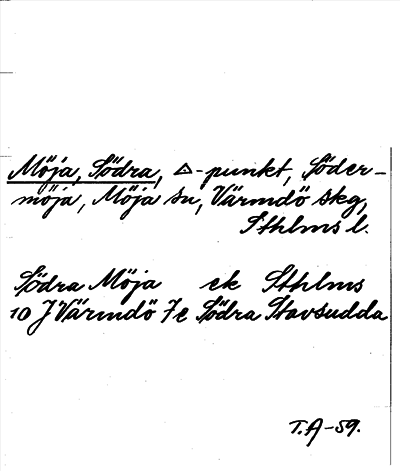 Möja, Södra, △-punkt, Söder-
möja, Möja sn, Värmdö skg,
Sthlms l.
Södra Möja ek Sthlms
10 J Värmdö 7e Södra Stavsudda
T.A-59.